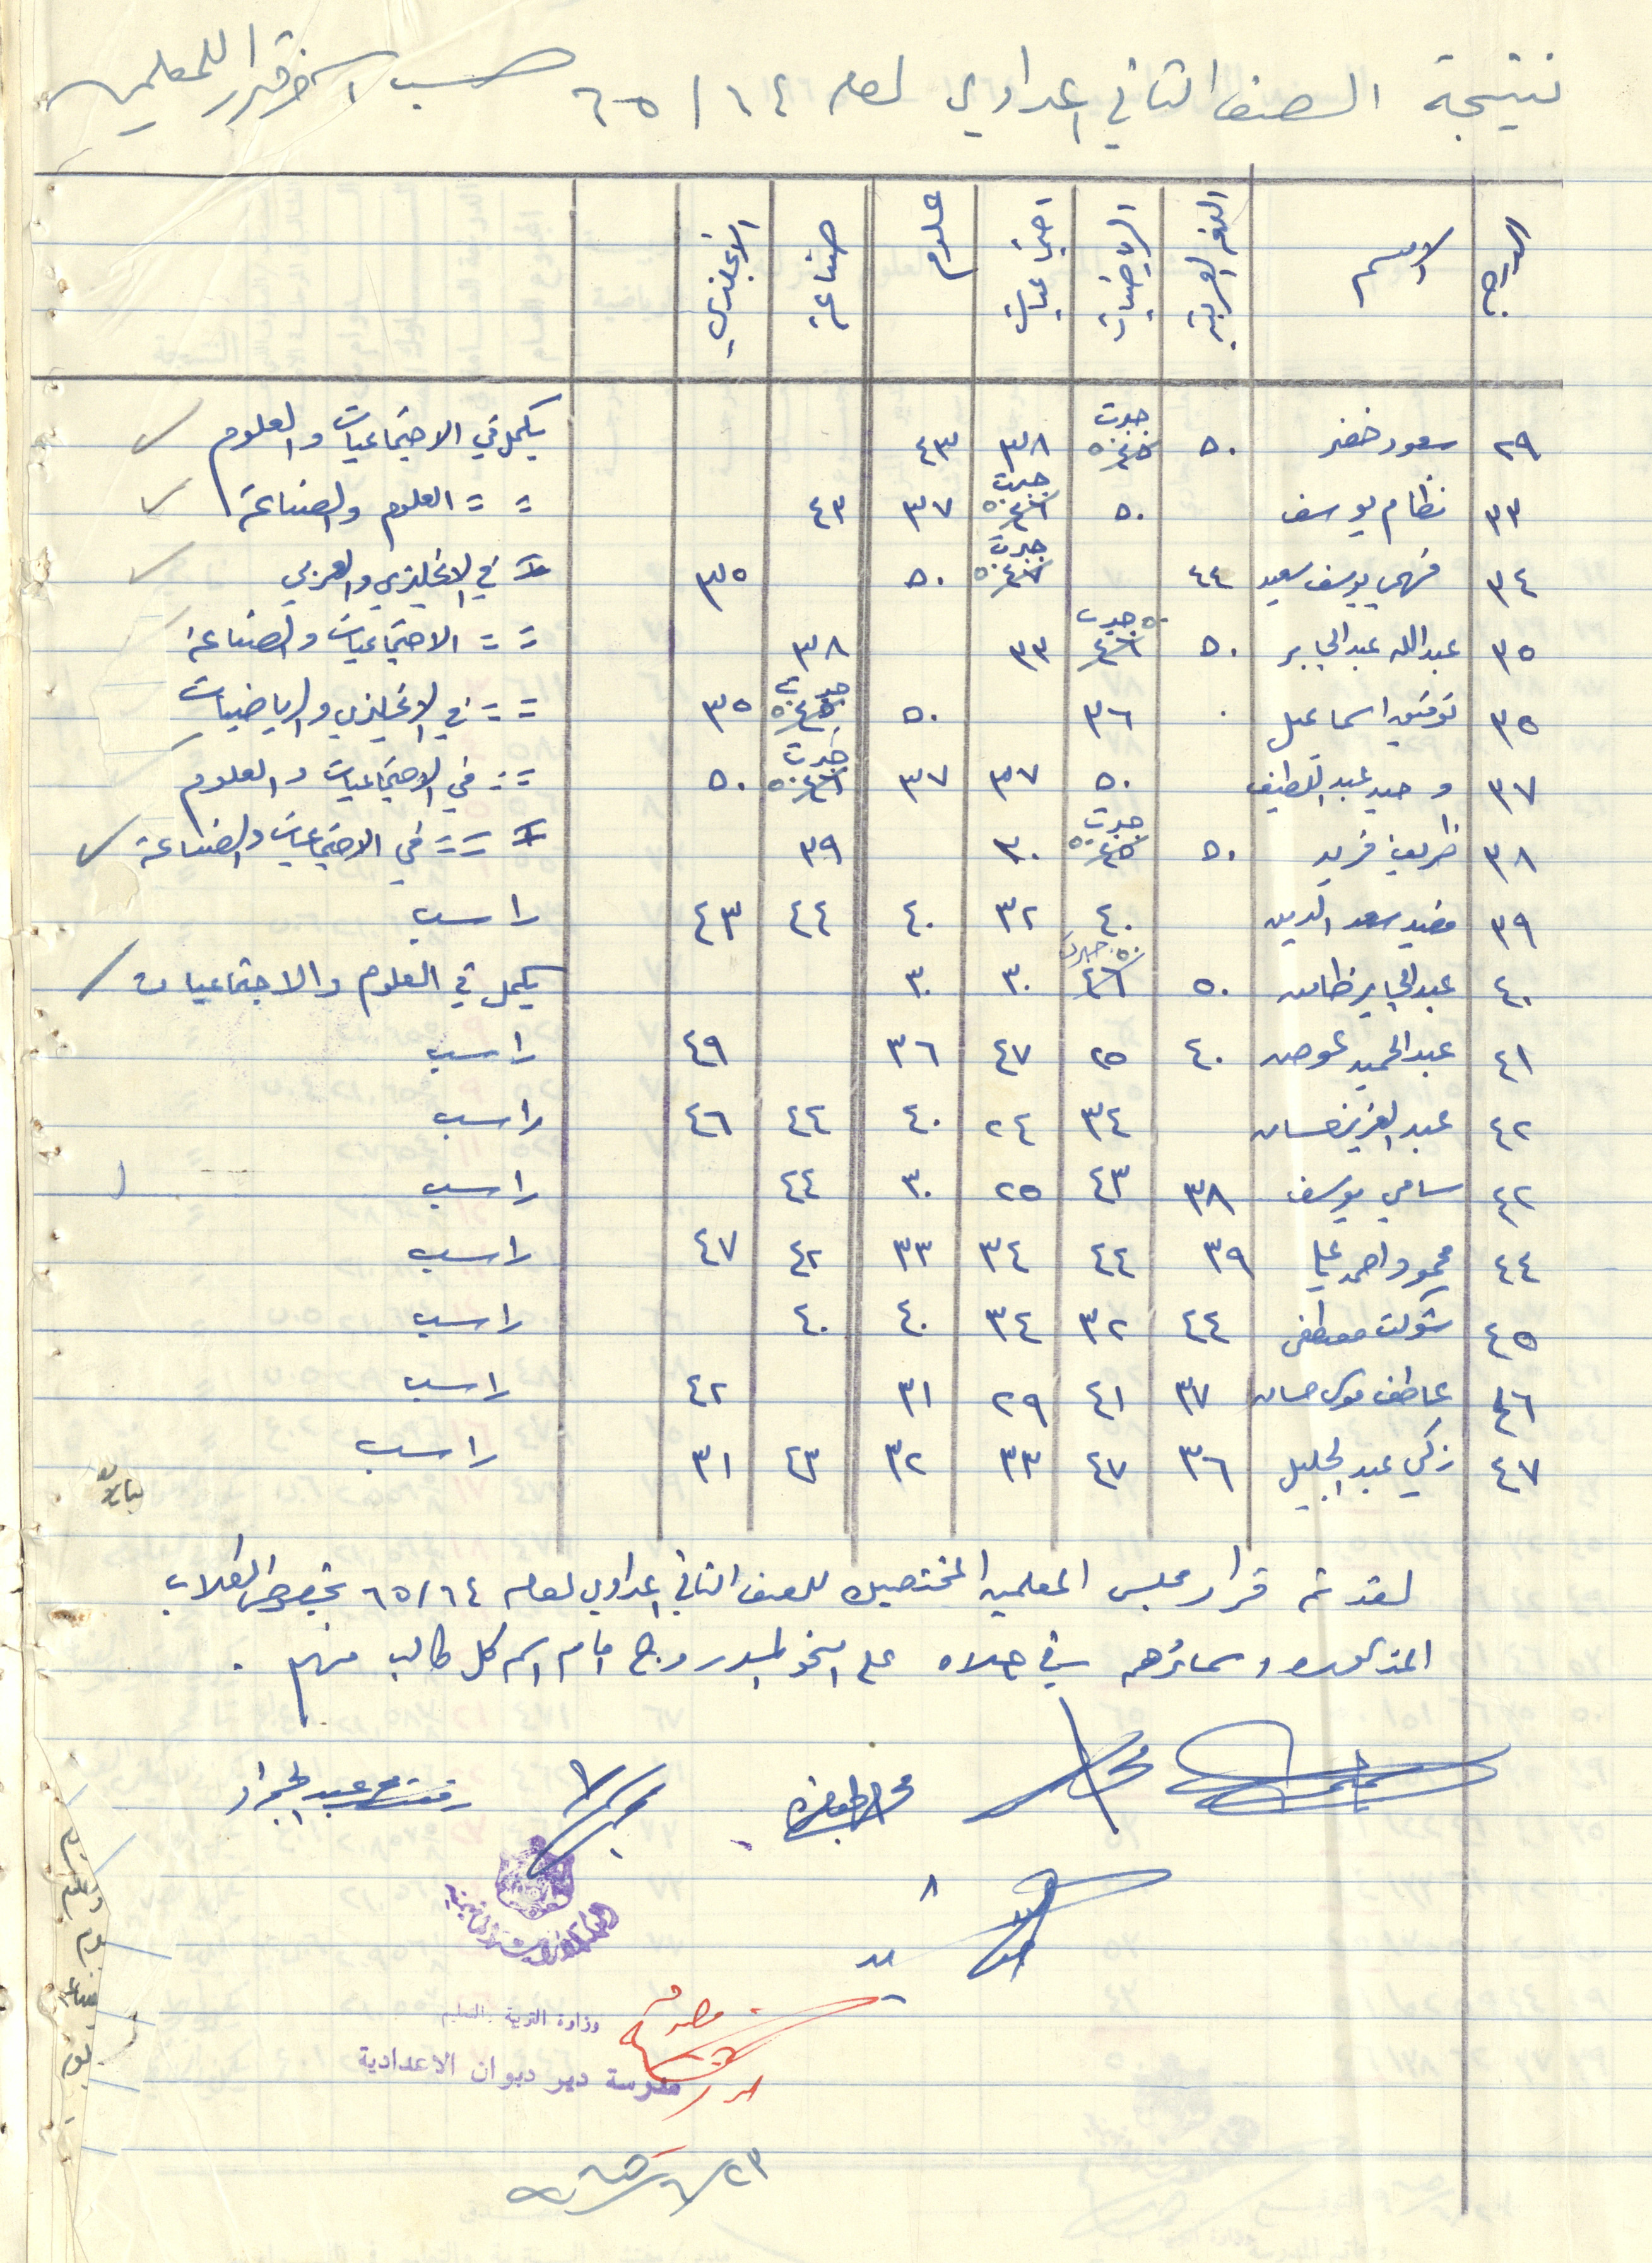 نتيجة الصف الثاني اعدادي لعام ٦٤ / ٦٥ حسب آخر قرار للمعلمين
الدرجة الاسم اللغة العربية الرياضيات اجتماعيات علوم صناعة الانجليزي
٢٩ سعود خضر ٥٠ جبرت ٤٥ ٥٠ ٣٨ ٤٣ يكمل في الاجتماعيات والعلوم
٣٣ نظام يوسف ٥٠ جبرت ٤٦ ٥٠ ٣٧ ٤٣ = = العلوم والصناعة
٣٤ فهمي يوسف سعيد ٤٤ جبرت ٤٧ ٥٠ ٥٠ ٣٥ = في الانجليزي والعربي
٣٥ عبدالله عبدالجابر ٥٠ جبرت ٤٦ ٥٠ ٣٣ ٣٨ = = الاجتماعيات والصناعة
٣٥ توفيق اسماعيل ٣٦ ٥٠ جبرت ٤٥ ٥٠ ٣٥ = = في الانجليزي والرياضيات
٣٧ وحيد عبد اللطيف ٥٠ ٣٧ ٣٧ جبرت ٤٦ ٥٠ ٥٠ = = في الاجتماعيات والعلوم
٣٨ ظريف فريد ٥٠ جبرت ٤٥ ٥٠ ٣٠ ٣٩ = = = في الاجتماعيات والصناعة
٣٩ مفيد سعد الدين ٤٠ ٣٢ ٤٠ ٤٤ ٤٣ راسب
٤٠ عبدالجابر ٥٠ جبرت ٤٦ ٥٠ ٣٠ ٣٠ يكمل في العلوم والاجتماعيات
٤١ عبدالحميد عوض ٤٠ ٢٥ ٤٧ ٣٦ ٤٩ راسب
٤٢ عبد العزيز حسان ٣٤ ٢٤ ٤٠ ٤٤ ٤٦ راسب
٤٢ سامي يوسف ٣٨ ٤٣ ٢٥ ٣٠ ٤٤ راسب
٤٤ محمود احمد علي ٣٩ ٤٤ ٣٤ ٣٣ ٤٢ ٤٧ راسب
٤٥ شوكت مصطفى ٤٤ ٣٢ ٣٤ ٤٠ ٤٠ راسب
٤٦ عاطف موسى حسان ٣٧ ٤١ ٢٩ ٣١ ٤٢ راسب
٤٧ زكي عبد الجليل ٣٦ ٤٧ ٣٣ ٣٢ ٤٣ ٣١ راسب
لقد تم قرار مجلس المعلمين المختصين للصف الثاني اعدادي لعام ٦٥/٦٤ بخصوص الطلاب
المذكورة اسماؤهم في اعلاه على النحو المدروج امام اسم كل طالب منهم .
عبد الجواد
وزارة التربية والتعليم
مدرسة دير دبوان الاعدادية